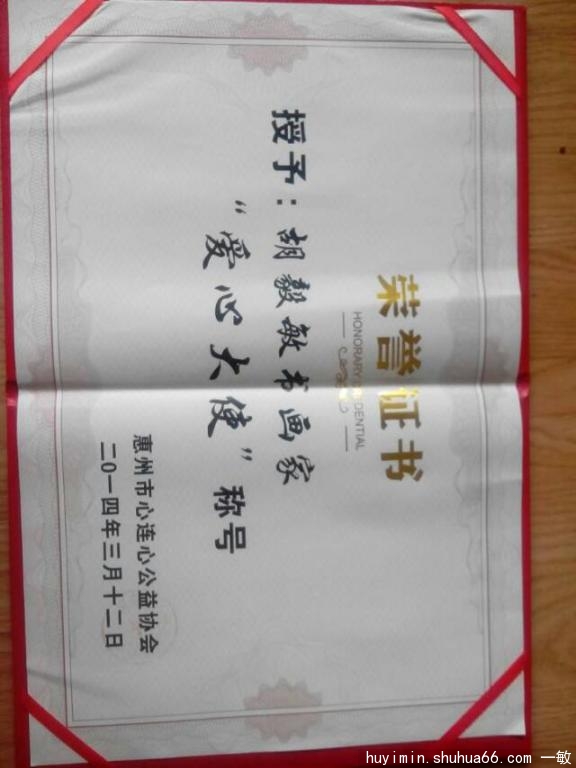 荣誉证书
HONORARY CREDENTIAL
授予：胡毅敏书画家
“爱心大使”称号
惠州市心连心公益协会
二0一四年三月十二日
huyimin.shuhua66.com 一敏